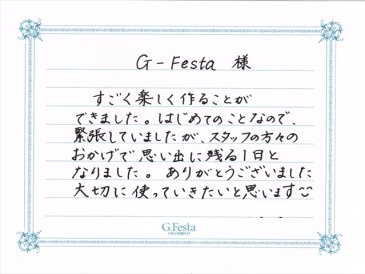 G-Festa 様
すごく楽しく作ることが
できました。はじめてのことなので、
緊張していましたが、スタッフの方々の
おかげで思い出に残る1日と
なりました。ありがとうございました
大切に使っていきたいと思います
G.Festa